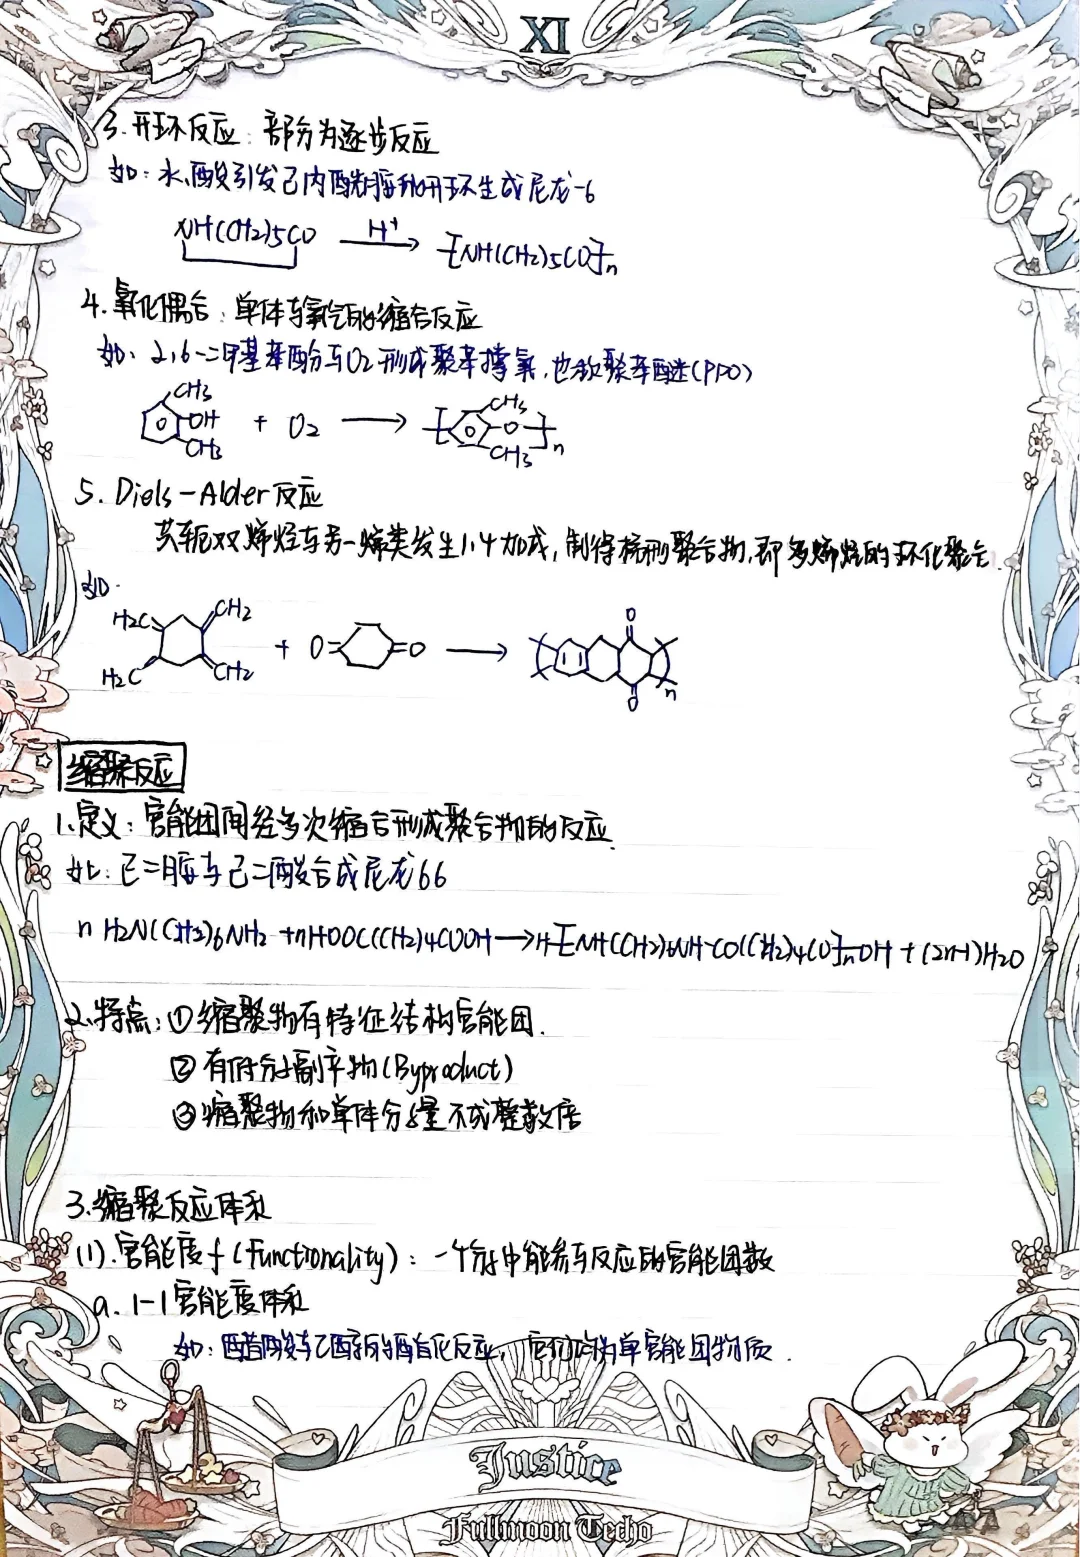 XI
3. 开环反应：部分为逐步反应
如：水、酸引发己内酰胺的开环生成尼龙-6
NH(CH2)5CO —H+→ -[NH(CH2)5CO]-n
4. 氧化偶合：单体与氧气的缩合反应
如：2,6-二甲基苯酚与O2形成聚苯撑氧，也称聚苯醚(PPO)
CH3 OH CH3 + O2 → [ CH3 O CH3 ]n
5. Diels-Alder反应
共轭双烯烃与另一烯类发生1,4加成，制得梯形聚合物，即多烯烃的环化聚合.
如.
H2C CH2 H2C CH2 + O= =O → ( O O )n
缩聚反应
1. 定义：官能团间经多次缩合形成聚合物的反应
如：己二胺与己二酸合成尼龙66
n H2N(CH2)6NH2 + nHOOC(CH2)4COOH → H-[NH(CH2)6NH-CO(CH2)4CO]-nOH + (2n-1)H2O
2. 特点：① 缩聚物有特征结构官能团.
② 有低分子副产物(Byproduct)
③ 缩聚物和单体分子量不成整数倍
3. 缩聚反应体系
(1). 官能度 f (Functionality)：一个分子中能参与反应的官能团数
a. 1-1官能度体系
如：醋酸与乙醇的酯化反应，它们均为单官能团物质.
Justice
Fullmoon Techo